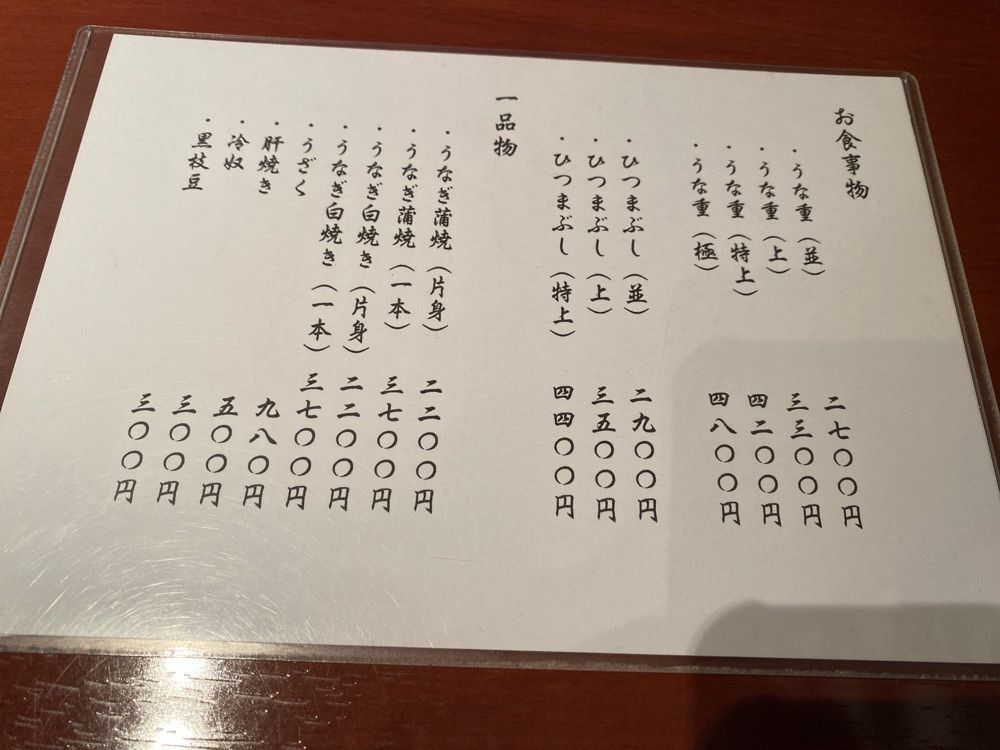 お食事物
・うな重（並） 二七〇〇円
・うな重（上） 三三〇〇円
・うな重（特上） 四二〇〇円
・うな重（極） 四八〇〇円
・ひつまぶし（並） 二九〇〇円
・ひつまぶし（上） 三五〇〇円
・ひつまぶし（特上） 四四〇〇円
一品物
・うなぎ蒲焼（片身） 二二〇〇円
・うなぎ蒲焼（一本） 三七〇〇円
・うなぎ白焼き（片身） 二二〇〇円
・うなぎ白焼き（一本） 三七〇〇円
・うざく 九八〇円
・肝焼き 五〇〇円
・冷奴 三〇〇円
・黒枝豆 三〇〇円